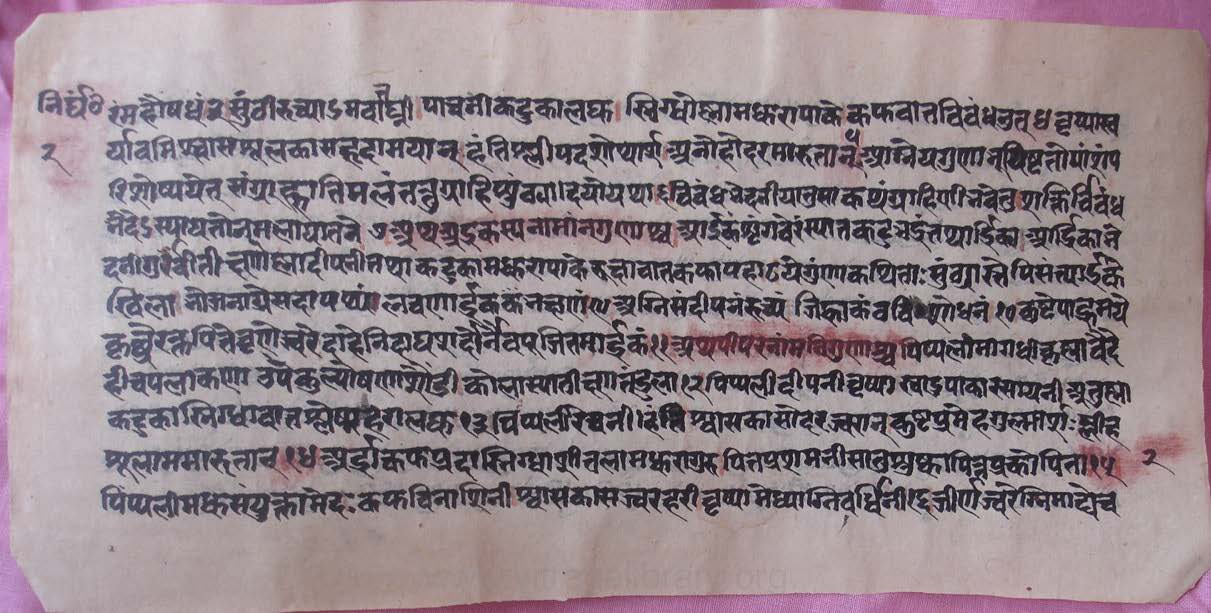 निर्घं॰ रमहौषधं २ सुंठी रुच्याऽमवातघ्नी पाचनी कटुका लघु स्निग्धोष्णा मधुरा पाके कफवातविबंधनुत् ४ वृष्यास्व
२ र्यावमिश्वासशूलकासहृदामयान् हंति श्लीपदशोथार्श आनाहोदरमारुतान् ५ आग्नेयगुणभूयिष्टं तोयांशं प
रिशोषयेत् संगृह्णाति मलं तत्तु ग्राहि शुंठ्यादयो यथा ६ विबंधभेदनी यातु सा कथं ग्राहिणी भवेत् शक्तिर्विबंध
भेदे स्याद्यतो न मलपातने ७ अथ आर्द्रकस्य नामानि गुणाश्च आर्द्रकं शृंगवेरं स्यात् कटुभद्रं तथार्द्रिका आर्द्रिका भे
दनी गुर्वी तीक्ष्णोष्णा दीपनी तथा कटुका मधुरा पाके रूक्षा वातकफापहा ८ ये गुणा कथिताः सुंठ्यास्तेपि संत्यार्द्रके
खिला भोजनाग्रे सदा पथ्यं लवणार्द्रकभक्षणं ९ अग्निसंदीपनं रुच्यं जिह्वाकंठविशोधनं १० कुष्टे पांड्वामये
कृच्छ्रे रक्तपित्ते व्रणे ज्वरे दाहे निदाघशरदोर्नैव पूजितमार्द्रकं ११ अथ पीपरनाम विगुणाश्च पिप्पली मागधी कृष्णा वैदे
ही चपला कणा उपकुल्योषणा शौंडी कोला स्यात्तीक्ष्णतंडुला १२ पिप्पली दीपनी वृष्या स्वादुपाका रसायनी अनुष्णा
कटुका स्निग्धा वातश्लेष्महरा लघु १३ पिप्पली रेचनी हंति श्वासकासोदरज्वरान् कुष्टप्रमेहगुल्मार्शः प्लीह
शूलाममारुतान् १४ आर्द्रा कफप्रदा स्निग्धा शीतला मधुरा गुरु पित्तप्रशमनी सा तु शुष्का पित्तप्रकोपिना १५ २
पिंप्पली मधुसंयुक्ता मेदःकफविनाशिनी श्वासकासज्वरहरी वृष्या मेध्याग्निवर्धिनी १६ जीर्णज्वरेग्निमांद्ये च